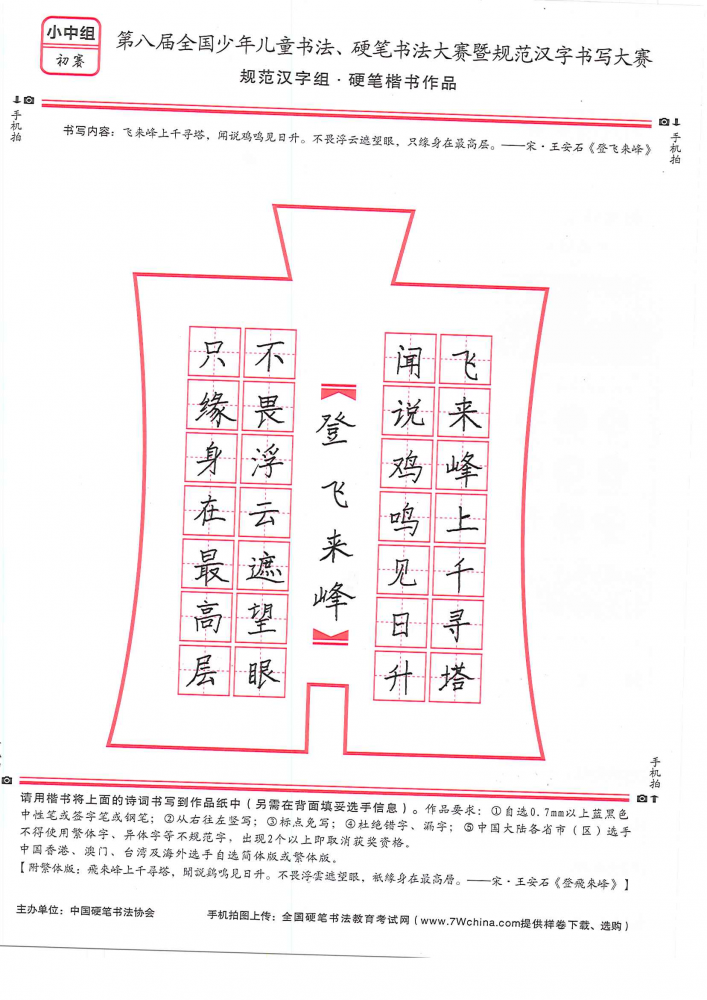 小中组
初赛
第八届全国少年儿童书法、硬笔书法大赛暨规范汉字书写大赛
规范汉字组·硬笔楷书作品
手机拍
手机拍
书写内容：飞来峰上千寻塔，闻说鸡鸣见日升。不畏浮云遮望眼，只缘身在最高层。——宋·王安石《登飞来峰》
飞来峰上千寻塔
闻说鸡鸣见日升
登飞来峰
不畏浮云遮望眼
只缘身在最高层
手机拍
请用楷书将上面的诗词书写到作品纸中（另需在背面填妥选手信息）。作品要求：①自选0.7mm以上蓝黑色
中性笔或签字笔或钢笔；②从右往左竖写；③标点免写；④杜绝错字、漏字；⑤中国大陆各省市（区）选手
不得使用繁体字、异体字等不规范字，出现2个以上即取消获奖资格。
中国香港、澳门、台湾及海外选手自选简体版或繁体版。
【附繁体版：飛來峰上千尋塔，聞說鷄鳴見日昇。不畏浮雲遮望眼，衹緣身在最高層。——宋·王安石《登飛來峰》】
主办单位：中国硬笔书法协会
手机拍图上传：全国硬笔书法教育考试网（www.7Wchina.com提供样卷下载、选购）